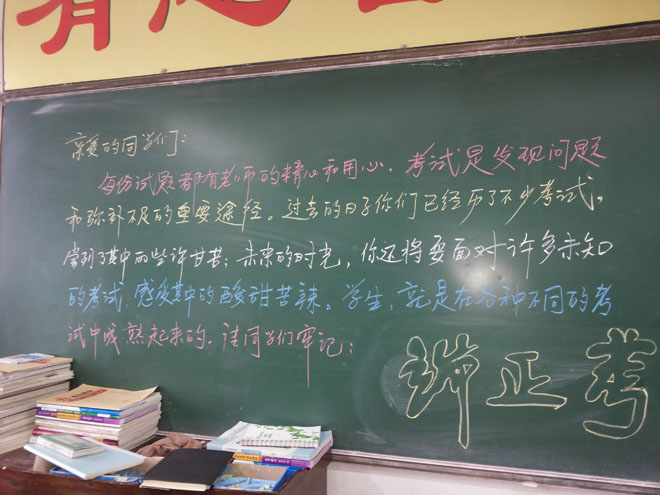 亲爱的同学们:
每份试题都有老师的精心和用心,考试是发现问题
和弥补不足的重要途径。过去的日子你们已经历了不少考试,
尝到了其中的些许甘苦;未来的时光,你还将要面对许多未知
的考试,感受其中的酸甜苦辣。学生,就是在各种不同的考
试中成熟起来的,请同学们牢记:
端正考